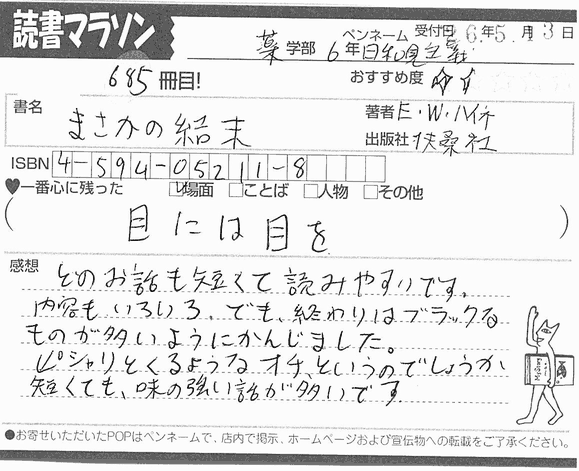 読書マラソン
薬学部 6年 ペンネーム 日和見主義 受付日 26年5月13日
685冊目! おすすめ度 ☆☆
書名 まさかの結末
著者 E・W・ハイネ
出版社 扶桑社
ISBN 4-594-05211-8
♥一番心に残った □場面 □ことば □人物 □その他
(目には目を)
感想
どのお話も短くて読みやすいです。
内容もいろいろ。でも、終わりはブラックな
ものが多いようにかんじました。
ピシャリとくるようなオチ、というのでしょうか
短くても、味の強い話が多いです
●お寄せいただいたPOPはペンネームで、店内で掲示、ホームページおよび宣伝物への転載をご了承ください。